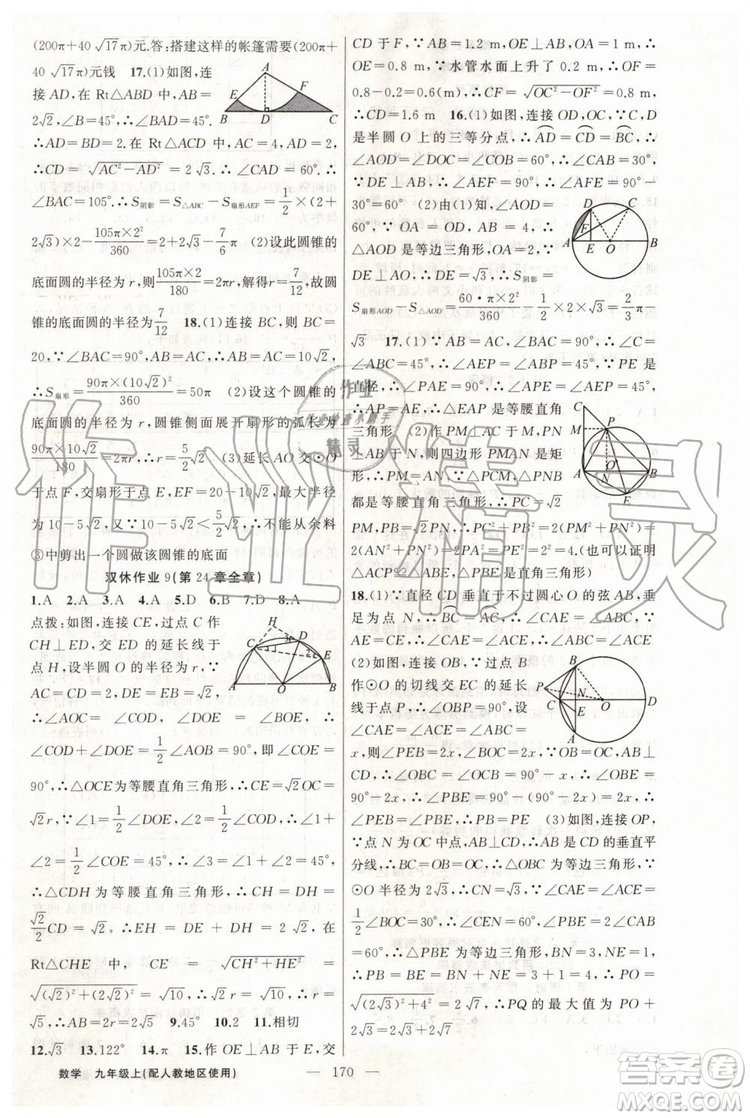 (200π+40√17π)元.答:搭建这样的帐篷需要(200π+
40√17π)元钱 17.(1)如图,连
接 AD,在 Rt△ABD 中,AB=
2√2,∠B=45°,∴∠BAD=45°.
∴AD=BD=2.在 Rt△ACD 中,AC=4,AD=2,
∴CD=√(AC²-AD²)=2√3.∴∠CAD=60°.∴
∠BAC=105°.∴S阴影=S△ABC-S扇形AEF=1/2×(2+
2√3)×2-105π×2²/360=2+2√3-7/6π (2)设此圆锥的
底面圆的半径为 r,105π×2/180=2πr,解得 r=7/12,故圆
锥的底面圆的半径为7/12 18.(1)连接 BC,则 BC=
20,∵∠BAC=90°,AB=AC,∴AB=AC=10√2.
∴S扇形=90π×(10√2)²/360=50π (2)设这个圆锥的
底面圆的半径为 r,圆锥侧面展开扇形的弧长为
90π×10√2/180=2πr,∴r=5√2/2 (3)延长 AO 交⊙O
于点 F,交扇形于点 E,EF=20-10√2,最大半径
为 10-5√2<5√2/2,∴不能从余料
③中剪出一个圆做该圆锥的底面
双休作业 9(第 24 章全章)
1.A 2.A 3.A 4.A 5.D 6.B 7.D 8.A
点拨:如图,连接 CE,过点 C 作
CH⊥ED,交 ED 的延长线于
点 H,设半圆 O 的半径为 r,∵
AC=CD=2,DE=EB=√2,
∴∠AOC=∠COD,∠DOE=∠BOE,∴
∠COD+∠DOE=1/2∠AOB=90°,即∠COE=
90°.∴△COE 为等腰直角三角形,∴CE=√2OC=
√2r.∵∠1=1/2∠DOE,∠2=1/2∠COD,∴∠1+
∠2=1/2∠COE=45°,∴∠CDH=∠1+∠2=45°,
∵CH⊥DH,∴△CDH 为等腰直角三角形,∴CH=DH=
√2/2CD=√2.∴EH=DH+DE=2√2,在
Rt△CHE 中,CE=√(CH²+HE²)=
√((√2)²+(2√2)²)=√10,∴√2r=√10,∴r=
√5,∴AB=2r=2√5 9.45° 10.2 11.相切
12.√3 13.122° 14.√5 15.作 OE⊥AB 于 E,交
CD 于 F,∵AB=1.2 m,OE⊥AB,OA=1 m,∴
OE=0.8 m,∵水管水面上升了 0.2 m,∴OF=
0.8-0.2=0.6(m),∴CF=√(OC²-OF²)=0.8 m,
∴CD=1.6 m 16.(1)如图,连接 OD,OC,∵C,D
是半圆 O 上的三等分点,∴AD=CD=BC,∴
∠AOD=∠DOC=∠COB=60°,∴∠CAB=30°,
∵DE⊥AB,∴∠AEF=90°,∴∠AFE=90°-
30°=60° (2)由(1)知,∠AOD=
60°,∵OA=OD,AB=4,∴
△AOD 是等边三角形,OA=2,
∵DE⊥AO,∴DE=√3,∴S阴影=
S扇形AOD-S△AOD=60·π×2²/360-1/2×2×√3=2/3π-
√3 17.(1)∵△ABC 是等腰直角三角形,∴∠C=∠ABC=45°,∴∠PEA=∠ABC=45°,又∵PE 是⊙O 的
直径,∴∠PAE=90°,∴∠PEA=
∠APE=45°,∴△APE 是等腰直角
三角形 (2)作 PM⊥AC 于 M,PN⊥AB
于 N,则四边形 PMAN 是矩
形,∴PM=AN,∵△PCM,△PNB
都是等腰直角三角形,∴PC=√2
PM,PB=√2PN,∴PC²+PB²=2(PM²+PN²)=
2(AN²+PN²)=2PA²=PE²=2²=4
(也可证明△ACP≌△ABE,△PBE是直角三角形)
18.(1)∵直径 CD 垂直于不过圆心 O 的弦 AB,垂
足为点 N,∴AC=BC,∴∠CAE=∠CBE,∵AE=
BE,∴∠ABC=∠BAE,∴∠CAE=∠CBE
(2)如图,连接 OB,OC,过点 B
作⊙O 的切线交 EC 的延长
线于点 P,∴∠OBP=90°,设
∠CAE=∠ABC=∠BAE=
x,∴∠BOC=2∠CAE=2x.∵OB=OC,∴
∠OBC=∠OCB=90°-x,∴∠PBE=∠OBP-
∠OBC=90°-(90°-x)+x=2x,∵∠PEB=2x,
∴∠PBE=∠PEB,∴PB=PE (3)如图,连接 OP,
∵点 N 为 OC 中点,∴AB 是 CD 的垂直平
分线,∴BC=OB=OC,∴△OBC 是等边三角形,∵
⊙O 半径为 2√3,∴CN=√3,∵∠CAE=∠BAE=
1/2∠BOC=30°,∴∠CEN=60°,∠PBE=2∠CAE=
60°,∴△PBE 是等边三角形,BN=3,NE=1,
∴PB=BE=BN+NE=3+1=4.∴PO=
√((2√3)²+4²)=2√7,∴PQ 的最大值为 PO+
2√3=2√3+2√7
数学 九年级上(配人教地区使用) — 170 —